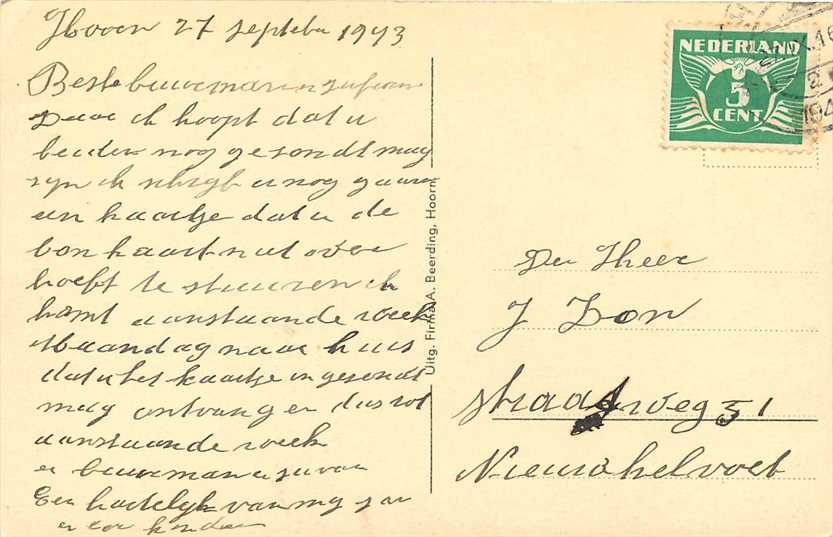 Hoorn 27 September 1943
Beste buurman en
Dewe ik hoopt dat u
beiden nog gesondt mag
syn ik u nog gauw
een kaartje dat u de
bonkaart niet over
hoeft te stuuren ik
komt aanstaande week
Maandag naar huis
dat u het kaartje in gesondt
mag ontvangen dus tot
aanstaande week
en buurman en
Een hartelyk van my
en
Uitg. Firma A. Beerding, Hoorn
NEDERLAND
5
CENT
Der Heer
J Don
straatweg 31
Nieuwhelvoet